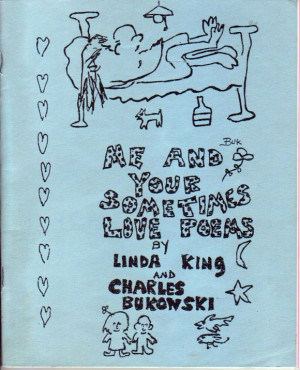 Buk
ME AND
YOUR
SOMETIMES
LOVE POEMS
BY
LINDA KING
AND
CHARLES
BUKOWSKI